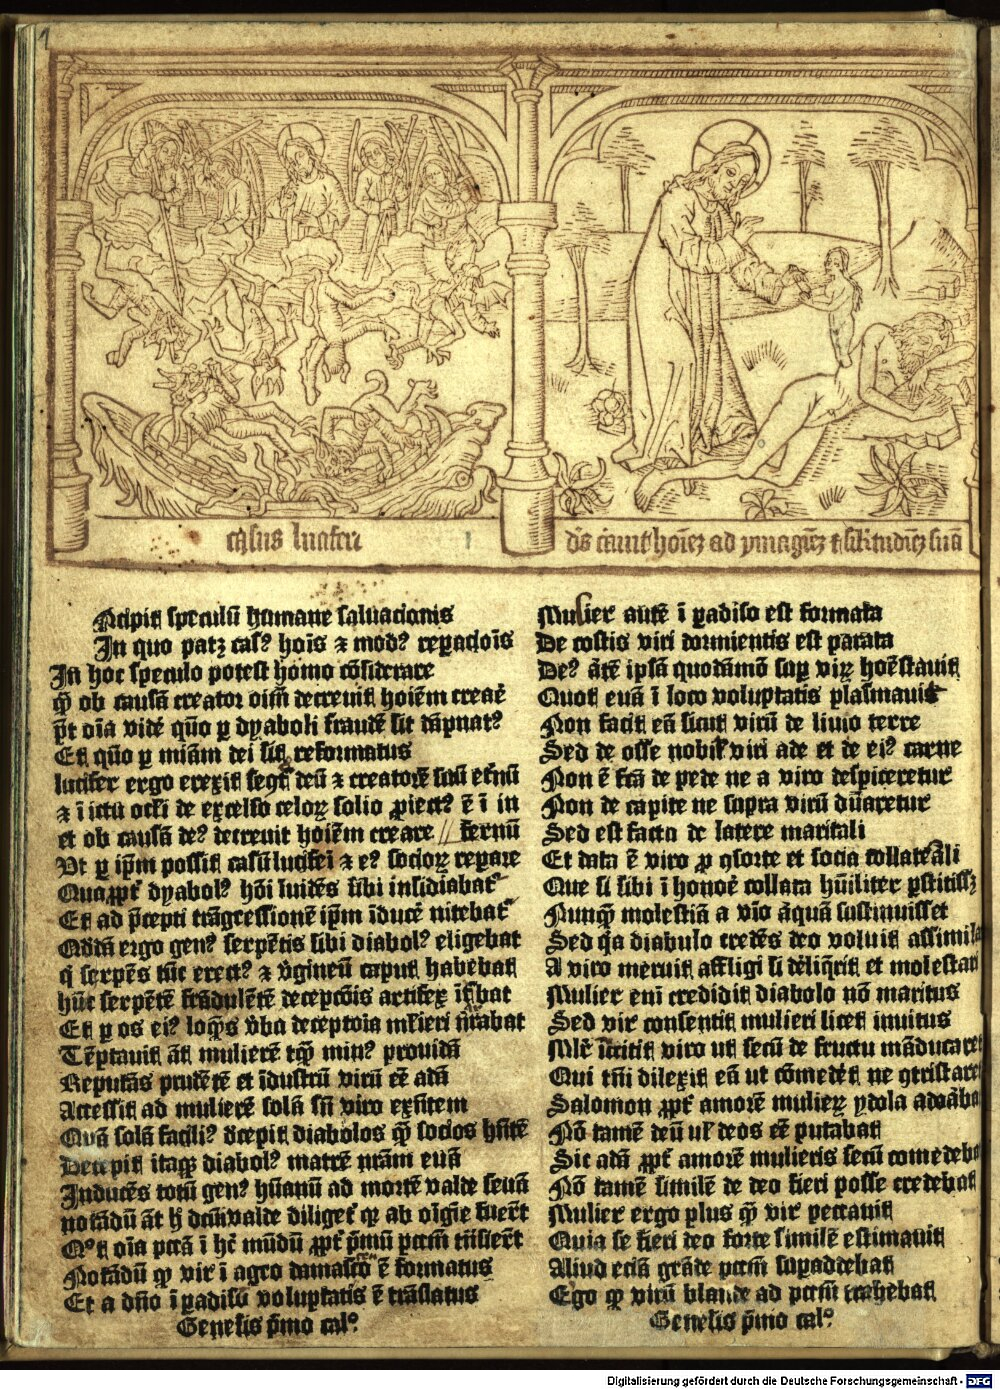 1
casus luciferi
dn̄s creauit hoīeꝫ ad ymagieꝫ ⁊ silitudieꝫ suā
Ncipit speculū humane saluacionis
In quo patꝫ casꝰ hoīs ⁊ modꝰ repacōis
In hoc speculo potest homo cōsiderare
ꝙ ob causā creator oīm decreuit hoīem creaē
pt̄ oīa vidē quō ꝑ dyaboli fraudē sit dāpnatꝰ
Et quō ꝑ miām dei sit reformatus
lucifer ergo erexit se ꝯtͣ deū ⁊ creatorē suū et̄nū
⁊ ī ictu ocl̄i de excelso celoꝝ solio ꝓiectꝰ ē ī in
et ob causā deꝰ decreuit hoīem creare // fernū
Vt ꝑ ip̄m possit casū luciferi ⁊ eꝰ socioꝝ repare
Quaꝓpt̄ dyabolꝰ hōi īuidēs sibi insidiabat᷑
Et ad p̄cepti trāgressionē ip̄m īducē nitebat᷑
Qddā ergo genꝰ serpētis sibi diabolꝰ eligebat
q̄ serpēs tūc erectꝰ ⁊ v̓gineū caput habebat
hūc serpētē frādulētē decepcōis artifex ītͣbat
Et ꝑ os eiꝰ loqͣns v̓ba deceptoīa ml̓ieri nr̄abat
Tēptauit āt mulierē tāqͣ minꝰ prouidā
Reputās prudētē et īdustrū virū eē adā
Accessit ad mulierē solā sn̄ viro exn̄tem
Quā solā faciliꝰ decepit diabolos ꝙ̄ socios hn̄tē
Decepit itaqꝫ diabolꝰ matrē nr̄am euā
Inducēs totū genꝰ hūanū ad mortē valde seuā
notādū āt
Qd oīa
Notādū ꝙ vir ī agro damasceō ē formatus
Et a dn̄o ī padisū voluptatis ē trāslatus
Genesis pͥmo calꝰ
Mulier autē ī padiso est formata
De costis viri dormientis est parata
Deꝰ āt̄ ipsā quodāmō suꝑ virꝝ honēstauit
Quot euā ī loco voluptatis plasmauit
Non facit eā sicut virū de limo terre
Sed de osse nobil̓ viri ade et de eiꝰ carne
Non ē fc̄a de pede ne a viro despiceretur
Non de capite ne supra virū dn̄aretur
Sed est facta de latere maritali
Et data ē viro ꝓ ꝯsorte et socia collaterali
Que si sibi ī honorē collata hūiliter ꝑstitissꝫ
Nunqͣ molestiā a viro āquā sustinuisset
Sed qͣa diabulo credēs deo voluit assimila
A viro meruit affligi
Mulier enī credidit diabolo nō maritus
Sed vir consentit mulieri licet inuitus
Ml̓r īcitit viro ut secū de fructu māducaret
Qui tn̄ dilexit eā ut cōmedēt ne ꝯtristaret
Salomon ꝓpt̄ amorē mulieꝝ ydola adorāba
Nō tamē deū ul̓ deos eē putabat
Sic adā ꝓpt̄ amorē mulieris secū comedeba
Nō tamē similē de deo fieri posse credebat
Mulier ergo plus ꝙ̄ vir peccauit
Quia se fieri deo forte similē estimauit
Aliud eciā grāde pccm̄ suꝑaddebat
Ergo ꝙ virū blande ad pccm̄ trahebat
Genesis pͥmo calꝰ
Digitalisierung gefördert durch die Deutsche Forschungsgemeinschaft - DFG